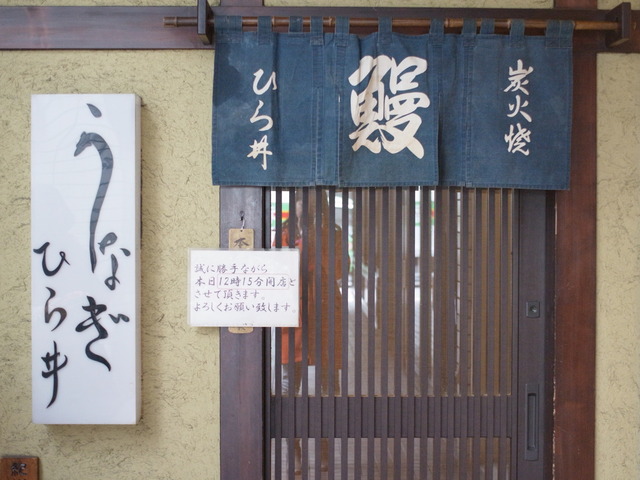 炭火焼
鰻
ひら井
うなぎ
ひら井
本
誠に勝手ながら
本日12時15分開店と
させて頂きます。
よろしくお願い致します。